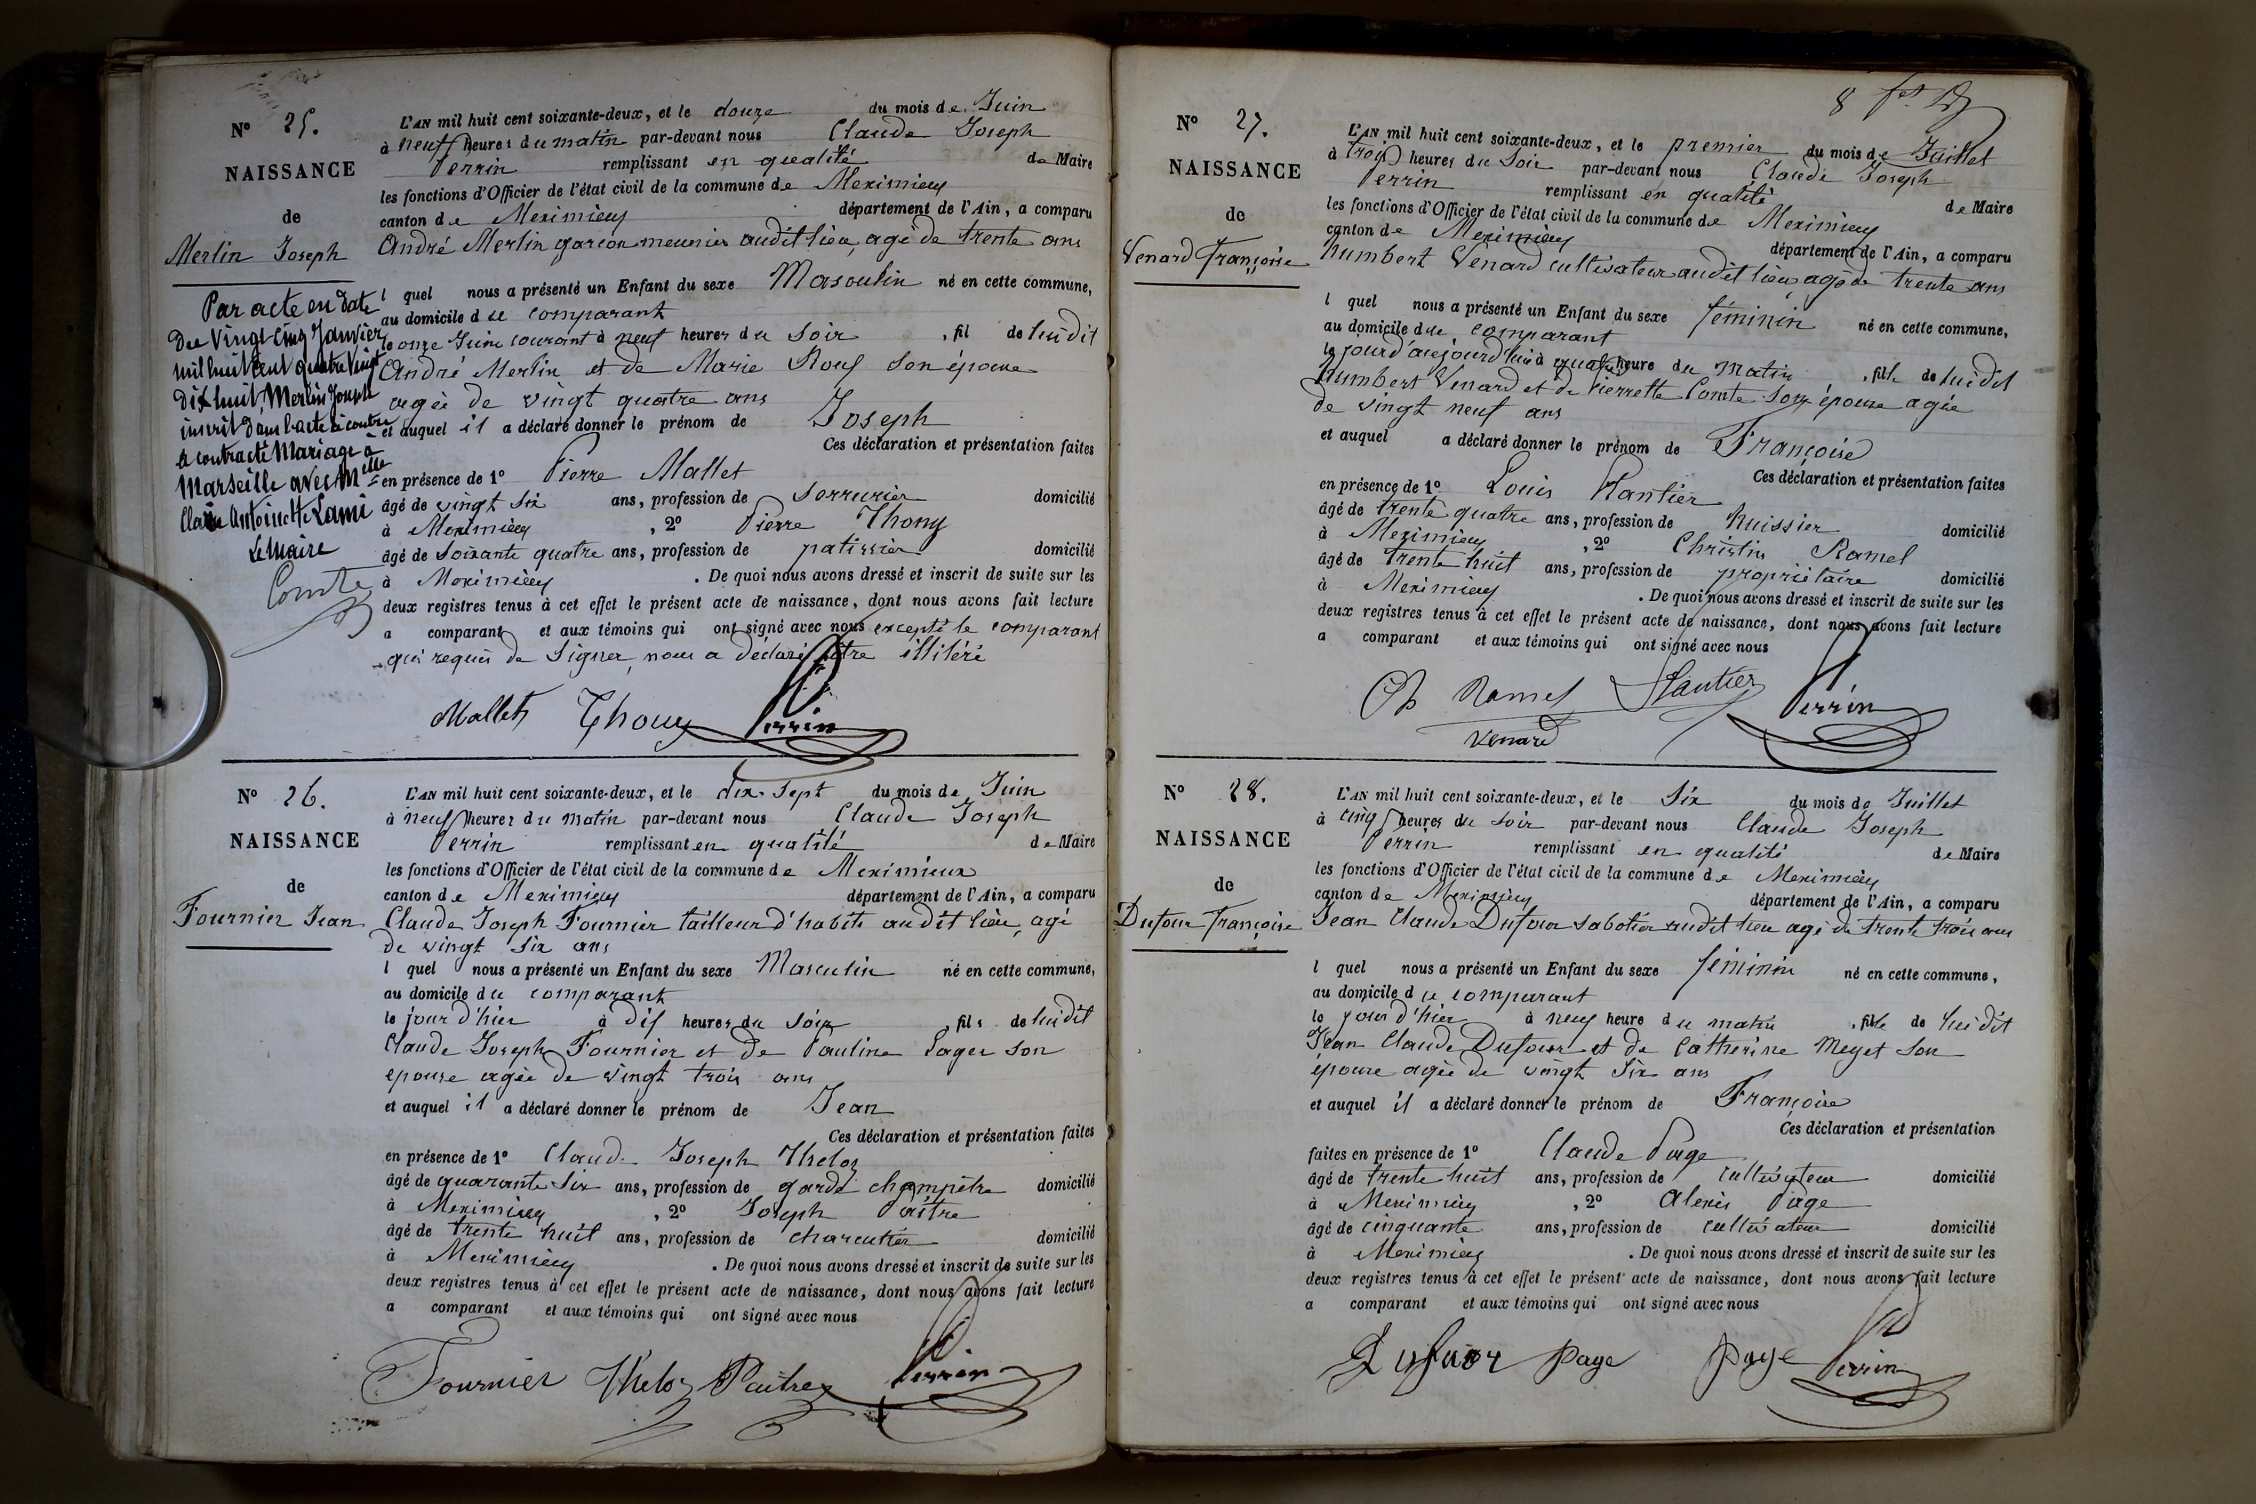 N° 25.
NAISSANCE
de
Merlin Joseph
Par acte en date
du Vingt cinq Janvier
mil huit cent quatre Vingt
dix huit, Merlin Joseph
inscrit dans l'acte ci contre
a contracté Mariage à
Marseille avec Melle
Claire Antoinette Lami
Le Maire
Comte
L'AN mil huit cent soixante-deux, et le douze du mois de Juin
à neuf heures du matin par-devant nous Claude Joseph
Perrin remplissant en qualité de Maire
les fonctions d'Officier de l'état civil de la commune de Meximieux
canton de Meximieux département de l'Ain, a comparu
André Merlin garçon meunier audit lieu, agé de trente ans
l quel nous a présenté un Enfant du sexe Masculin né en cette commune,
au domicile du comparant
le onze Juin courant à neuf heures du soir, fil de lui dit
André Merlin et de Marie Roux son épouse
agée de vingt quatre ans
et auquel il a déclaré donner le prénom de Joseph
Ces déclaration et présentation faites
en présence de 1° Pierre Mallet
âgé de vingt six ans, profession de serrurier domicilié
à Meximieux, 2° Pierre Thony
âgé de soixante quatre ans, profession de patissier domicilié
à Meximieux. De quoi nous avons dressé et inscrit de suite sur les
deux registres tenus à cet effet le présent acte de naissance, dont nous avons fait lecture
a comparant et aux témoins qui ont signé avec nous excepté le comparant
qui requis de signer, nous a déclaré être illitéré
Mallet Thony Perrin
N° 26.
NAISSANCE
de
Fournier Jean
L'AN mil huit cent soixante-deux, et le dix-sept du mois de Juin
à neuf heures du matin par-devant nous Claude Joseph
Perrin remplissant en qualité de Maire
les fonctions d'Officier de l'état civil de la commune de Meximieux
canton de Meximieux département de l'Ain, a comparu
Claude Joseph Fournier tailleur d'habits audit lieu, agé
de vingt six ans
l quel nous a présenté un Enfant du sexe Masculin né en cette commune,
au domicile du comparant
le jour d'hier à dix heures du soir, fils de lui dit
Claude Joseph Fournier et de Pauline Lager son
epouse agée de vingt trois ans
et auquel il a déclaré donner le prénom de Jean
Ces déclaration et présentation faites
en présence de 1° Claude Joseph Theloz
âgé de quarante six ans, profession de garde champêtre domicilié
à Meximieux, 2° Joseph Paitre
âgé de trente huit ans, profession de charcutier domicilié
à Meximieux. De quoi nous avons dressé et inscrit de suite sur les
deux registres tenus à cet effet le présent acte de naissance, dont nous avons fait lecture
a comparant et aux témoins qui ont signé avec nous
Fournier Theloz Paitre Perrin
8
N° 27.
NAISSANCE
de
Venard Françoise
L'AN mil huit cent soixante-deux, et le premier du mois de Juillet
à trois heures du Soir par-devant nous Claude Joseph
Perrin remplissant en qualité de Maire
les fonctions d'Officier de l'état civil de la commune de Meximieux
canton de Meximieux département de l'Ain, a comparu
humbert Venard cultivateur audit lieu, agé de trente ans
l quel nous a présenté un Enfant du sexe féminin né en cette commune,
au domicile du comparant
le jourd'aujourd'hui à quatre heure du matin, fille de lui dit
humbert Venard et de Pierrette Comte son épouse agée
de vingt neuf ans
et auquel a déclaré donner le prénom de Françoise
Ces déclaration et présentation faites
en présence de 1° Louis Plantier
âgé de trente quatre ans, profession de huissier domicilié
à Meximieux, 2° Christin Ramel
âgé de trente huit ans, profession de propriétaire domicilié
à Meximieux. De quoi nous avons dressé et inscrit de suite sur les
deux registres tenus à cet effet le présent acte de naissance, dont nous avons fait lecture
a comparant et aux témoins qui ont signé avec nous
Ch Ramel Plantier Perrin
Venard
N° 28.
NAISSANCE
de
Dufour Françoise
L'AN mil huit cent soixante-deux, et le six du mois de Juillet
à cinq heures du soir par-devant nous Claude Joseph
Perrin remplissant en qualité de Maire
les fonctions d'Officier de l'état civil de la commune de Meximieux
canton de Meximieux département de l'Ain, a comparu
Jean Claude Dufour sabotier audit lieu agé de trente trois ans
l quel nous a présenté un Enfant du sexe féminin né en cette commune,
au domicile du comparant
le jour d'hier à neuf heure du matin, fille de lui dit
Jean Claude Dufour et de Catherine Meyet son
épouse agée de vingt six ans
et auquel il a déclaré donner le prénom de Françoise
Ces déclaration et présentation
faites en présence de 1° Claude Page
âgé de trente huit ans, profession de cultivateur domicilié
à Meximieux, 2° Alexis Page
âgé de cinquante ans, profession de cultivateur domicilié
à Meximieux. De quoi nous avons dressé et inscrit de suite sur les
deux registres tenus à cet effet le présent acte de naissance, dont nous avons fait lecture
a comparant et aux témoins qui ont signé avec nous
Dufour Page Page Perrin